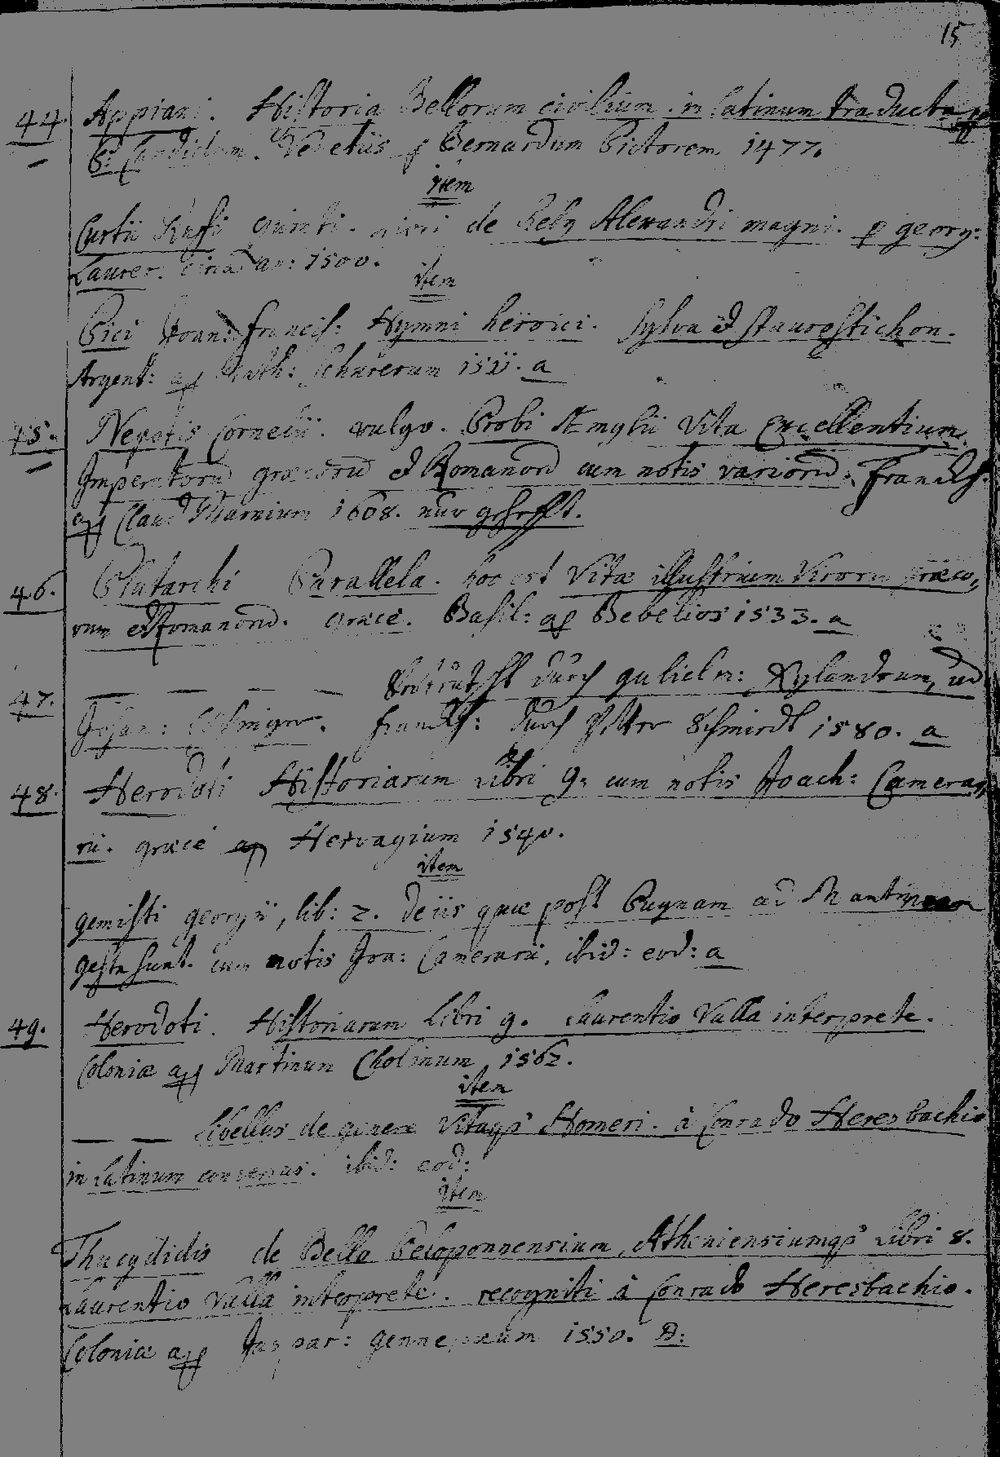 15
44 Appiani. Historia Bellorum civilium. in latinum traducta p
P: Candidum. Venetiis p Bernardum Pictorem 1477.
item
Curtii Rufi Quinti. libri de Reb9 Alexandri magni. p georg:
Laurer. circa an: 1500.
item
Pici Joan: francis: Hymni heroici. Sylva et staurostichon.
Argent: ap Math: Schurerum 1511. a
45. Nepotis Cornelii. vulgo. Probi Æmylii Vita Excellentium
Imperatorum græcorum et Romanorum cum notis variorum. Francof.
ap Claud Marnium 1608. nur gehefft.
46. Plutarchi Parallela. hoc est Vitæ illustrium Virorum Græco,
rum et Romanorum. græce. Basil: ap Bebelios 1533. a
47. — — — — durch gulielm: Xylandrum, und
Franckf: durch Peter Schmidt 1580. a
48. Herodoti Historiarum Libri 9. cum notis Joach: Camera,
rii. græce ap Hervagium 1540.
item
gemisti georgii, lib: 2. de iis quæ post Pugnam ad Mantineam
gesta sunt. cum notis Joa: Camerarii. ibid: eod: a
49. Herodoti. Historiarum Libri 9. Laurentio Valla interprete.
Coloniæ ap Martinum Cholinum 1562.
item
— — Libellus de genere Vitaq3 Homeri. à Conrado Heresbachio
in Latinum conversus. ibid: eod:
item
Thucydidis de Bello Peloponnensium, Atheniensiumq3 Libri 8.
Laurentio Valla interprete. recogniti à Conrado Heresbachio.
Coloniæ ap Jaspar: gennepæum 1550. D: